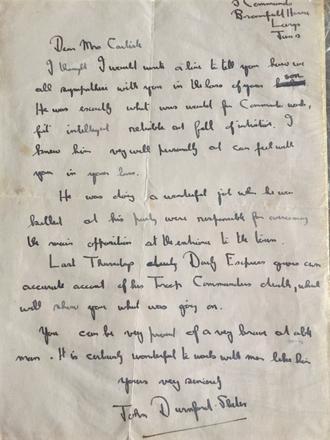 3 Commando
Broomfield House
Largs
June 3
Dear Mrs Carlisle
I thought I would write a line to tell you how we
all sympathise with you in the loss of your son.
He was exactly what was wanted for Commando work,
fit intelligent reliable and full of initiative. I
knew him very well personally and can feel with
you in your loss.
He was doing a wonderful job when he was
killed and his party were responsible for overcoming
the main opposition at the entrance to the town.
Last Thursdays Daily Express gives an
accurate account of his Troop Commanders death, which
will show you what was going on.
You can be very proud of a very brave and able
man. It is certainly wonderful to work with men like him
yours very sincerely
John Durnford-Slater